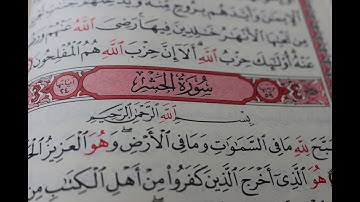 الْإِيمَٰنَ وَأَيَّدَهُم بِرُوحٍ مِّنْهُ
مِن تَحْتِهَا الْأَنْهَٰرُ خَٰلِدِينَ فِيهَا رَضِيَ اللَّهُ
عَنْهُ أُولَٰئِكَ حِزْبُ اللَّهِ أَلَا إِنَّ حِزْبَ اللَّهِ هُمُ الْمُفْلِحُونَ
سُورَةُ الْحَشْرِ
بِسْمِ اللَّهِ الرَّحْمَٰنِ الرَّحِيمِ
سَبَّحَ لِلَّهِ مَا فِي السَّمَٰوَٰتِ وَمَا فِي الْأَرْضِ وَهُوَ الْعَزِيزُ
هُوَ الَّذِي أَخْرَجَ الَّذِينَ كَفَرُوا مِنْ أَهْلِ الْكِتَٰبِ مِن